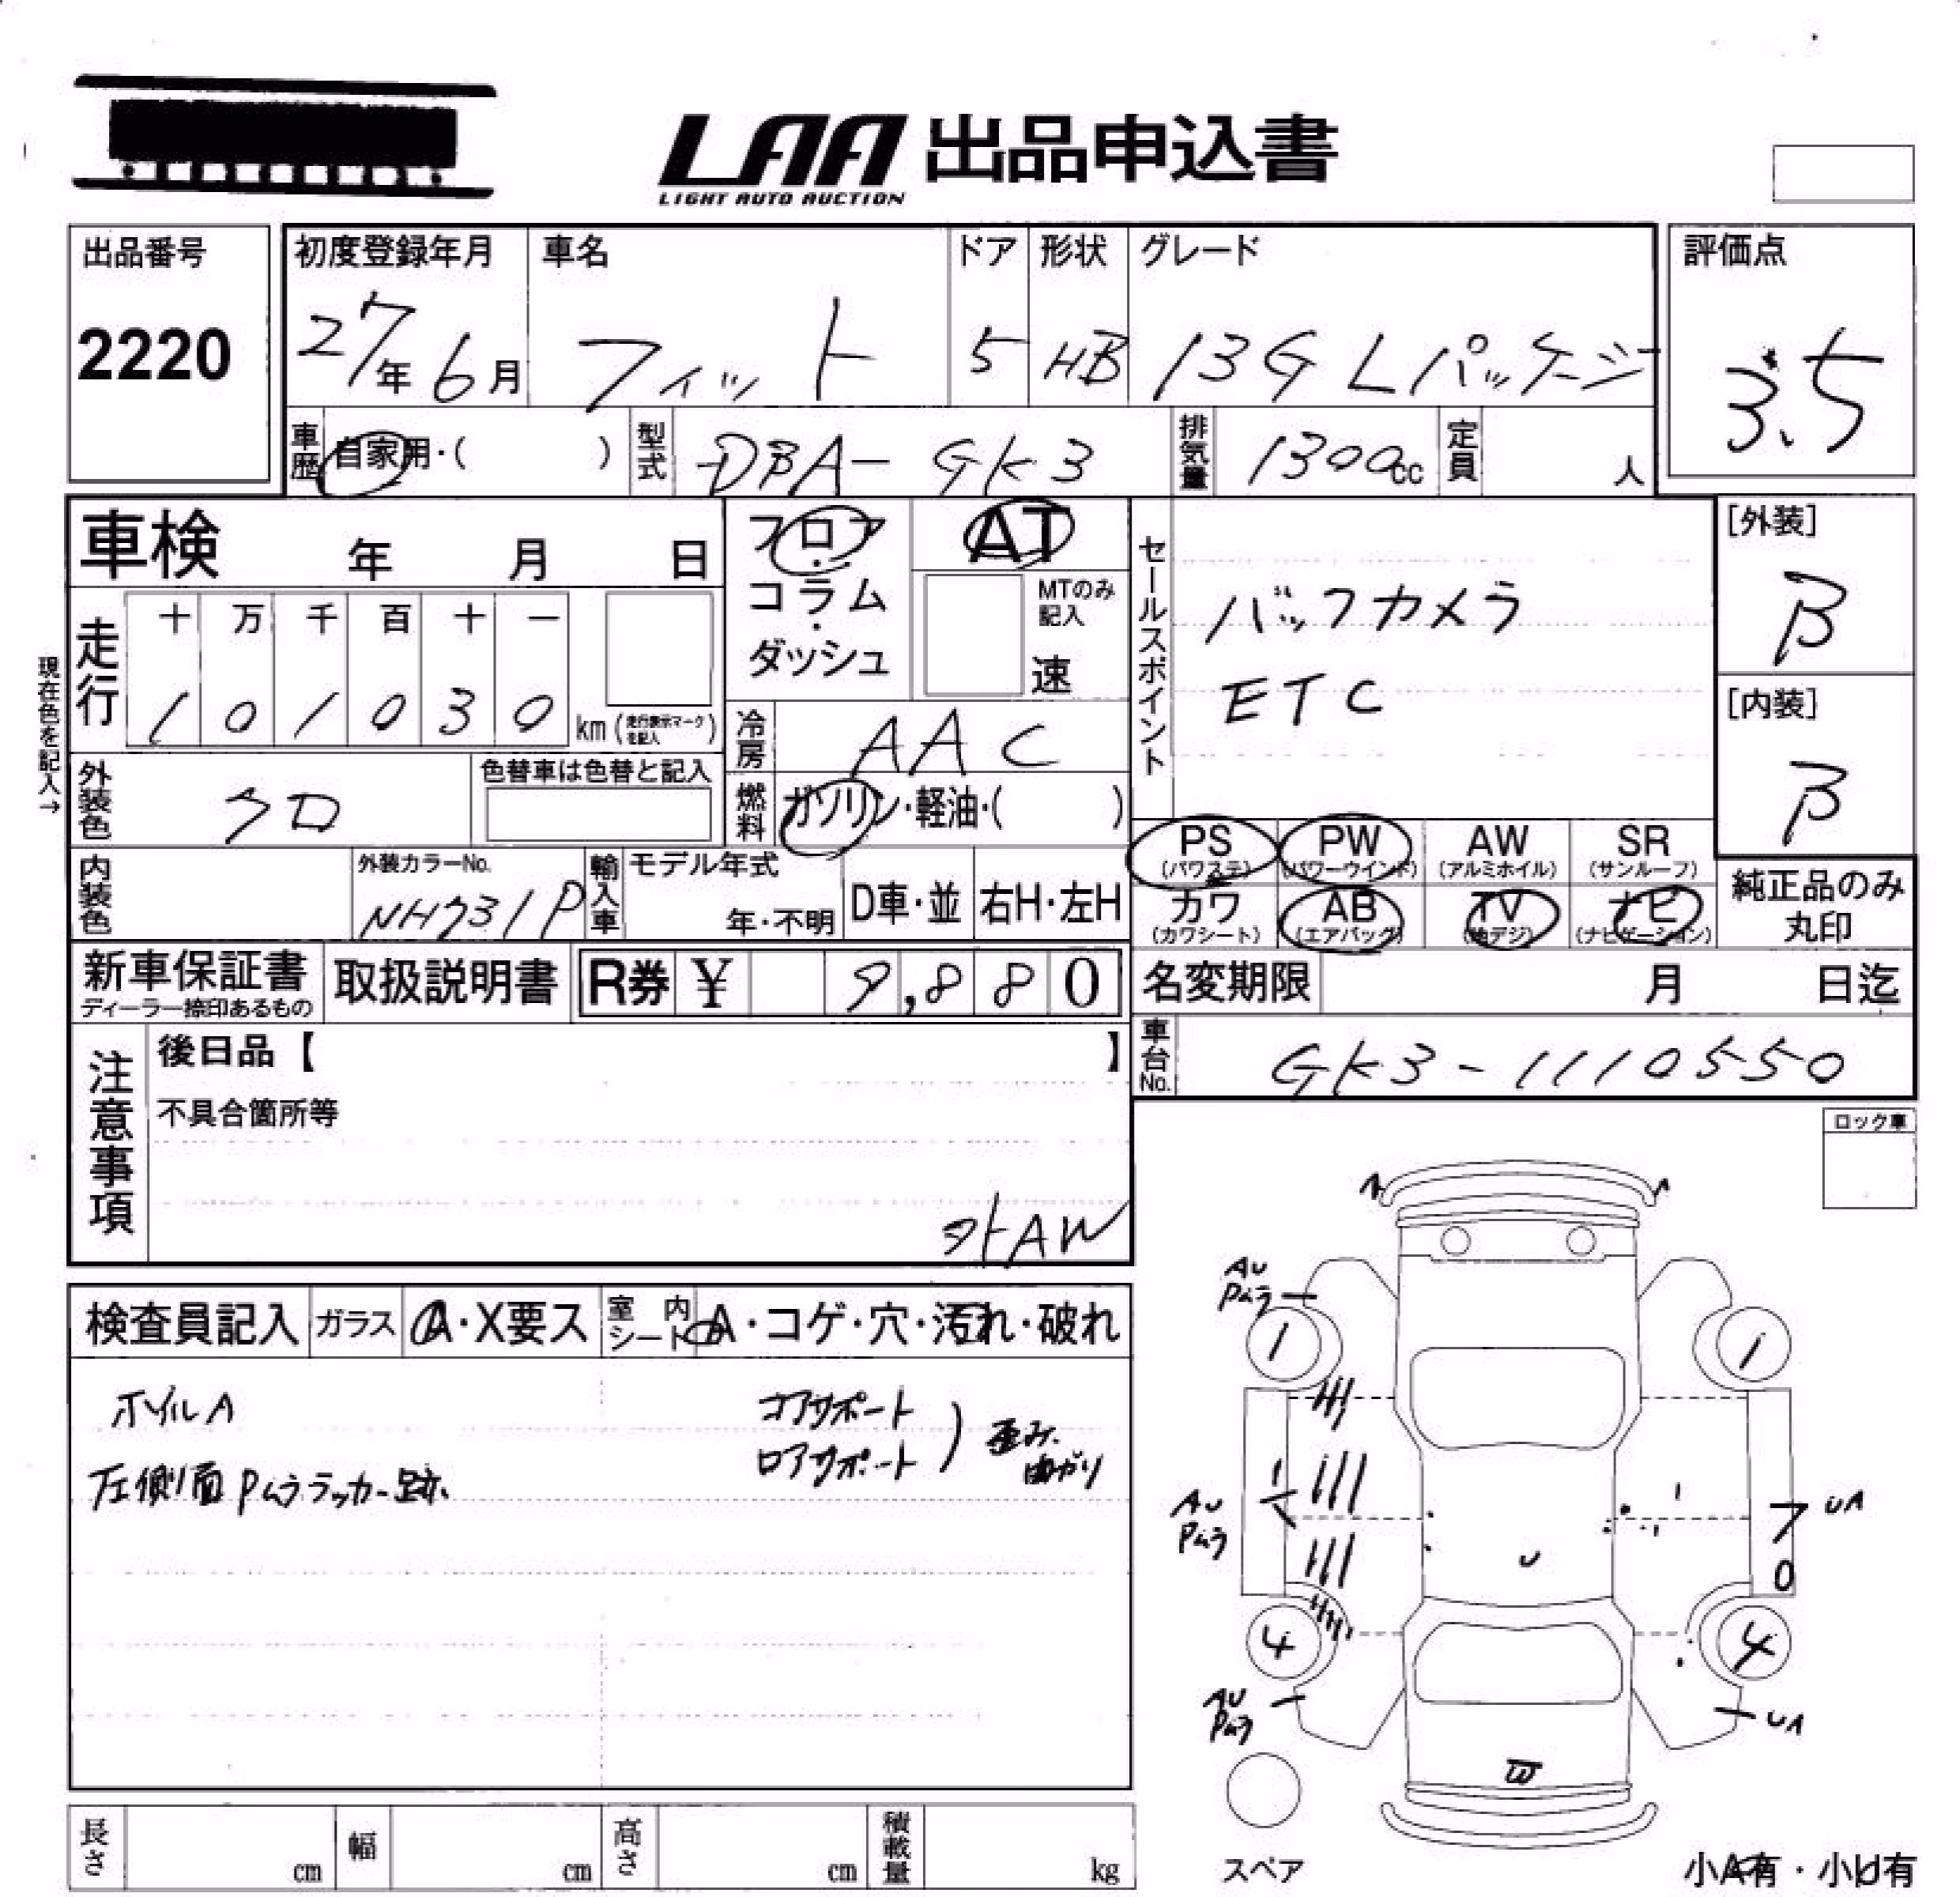 LAA 出品申込書
LIGHT AUTO AUCTION
出品番号 2220
初度登録年月 27年 6月
車名 フィット
ドア 5
形状 HB
グレード 13G Lパッケージ
評価点 3.5
車歴 自家用・( )
型式 DBA-GK3
排気量 1300cc
定員 人
車検 年 月 日
フロア・コラム・ダッシュ
AT
MTのみ記入 速
セールスポイント
バックカメラ
ETC
[外装] B
[内装] B
現在色を記入→
走行 十 万 千 百 十 一
1 0 1 0 3 0 km (走行表示マークを記入)
冷房 AAC
外装色 クロ
色替車は色替と記入
燃料 ガソリン・軽油・( )
PS (パワステ) PW (パワーウインド) AW (アルミホイル) SR (サンルーフ)
カワ (カワシート) AB (エアバッグ) TV (地デジ) ナビ (ナビゲーション)
純正品のみ丸印
内装色
外装カラーNo. NH731P
輸入車 モデル年式 年・不明 D車・並 右H・左H
新車保証書 ディーラー捺印あるもの
取扱説明書
R券 ¥ 9,880
名変期限 月 日迄
注意事項
後日品【 】
車台No. GK3-1110550
不具合箇所等
外AW
ロック車
検査員記入 ガラス A・X要ス 室内シート A・コゲ・穴・汚れ・破れ
ホイルA
コアサポート
ロアサポート ) 歪み、曲がり
左側面Pムララッカー跡
AU
Pムラ
1 1
AU
Pムラ
UA
7
0
U
4 4
AU
Pムラ
UA
W
スペア
小A有・小U有
長さ cm 幅 cm 高さ cm 積載量 kg